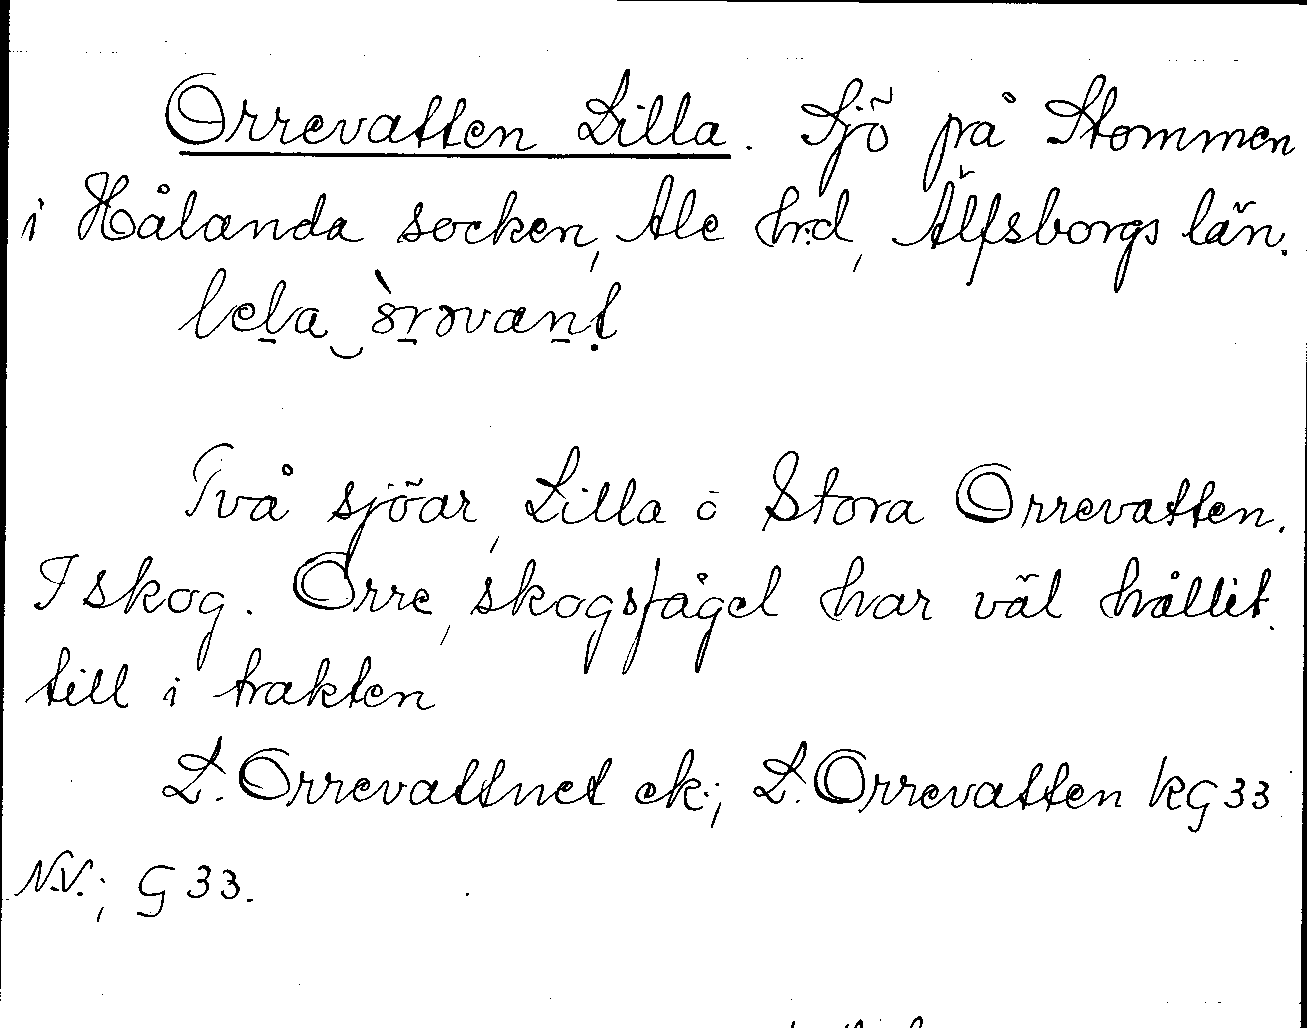 Orrevatten Lilla. Sjö på Stommen
i Hålanda socken, Ale hrd, Älfsborgs län.
Två sjöar, Lilla o Stora Orrevatten.
I skog. Orre, skogsfågel har väl hållit
till i trakten
L. Orrevattnet ek.; L. Orrevatten kG33
N.V.; G 33.